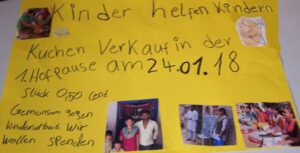 Kinder helfen Kindern
Kuchen Verkauf in der
1. Hofpause am 24.01.18
Stück 0,50 Cent
Gemeinsam gegen
Kinderarbeit Wir
wollen spenden